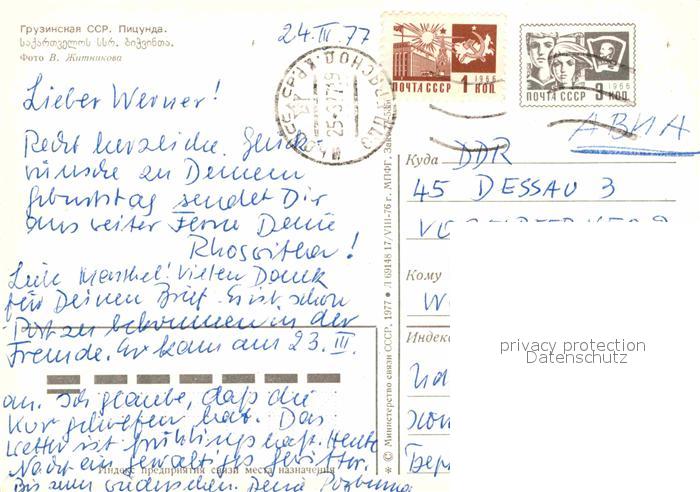 Грузинская ССР. Пицунда.
საქართველოს სსრ. ბიჭვინთა.
Фото В. Житникова
24. III. 77
Lieber Werner!
Recht herzliche
wünsche zu Deinem
Geburtstag sendet Dir
aus weiter Ferne Deine
! Vielen Dank
für Deinen Brief. Es ist schön
Post zu bekommen in der
Fremde. Er kam am 23. III.
an. Ich glaube, daß die
Kur geholfen hat. Das
Wetter ist frühlingshaft. Heute
Nacht ein gewaltiges Gewitter.
Индекс предприятия связи места назначения
Bis zum Wiedersehen. Deine
ПОЧТА СССР 1 КОП
1966
ПОЧТА СССР 3 КОП
1966
АВИА
Куда DDR
45 DESSAU 3
Кому
W
Индекс
privacy protection
Datenschutz
© Министерство связи СССР, 1977 • Л 69148 17/VIII-76 г. МПФГ.